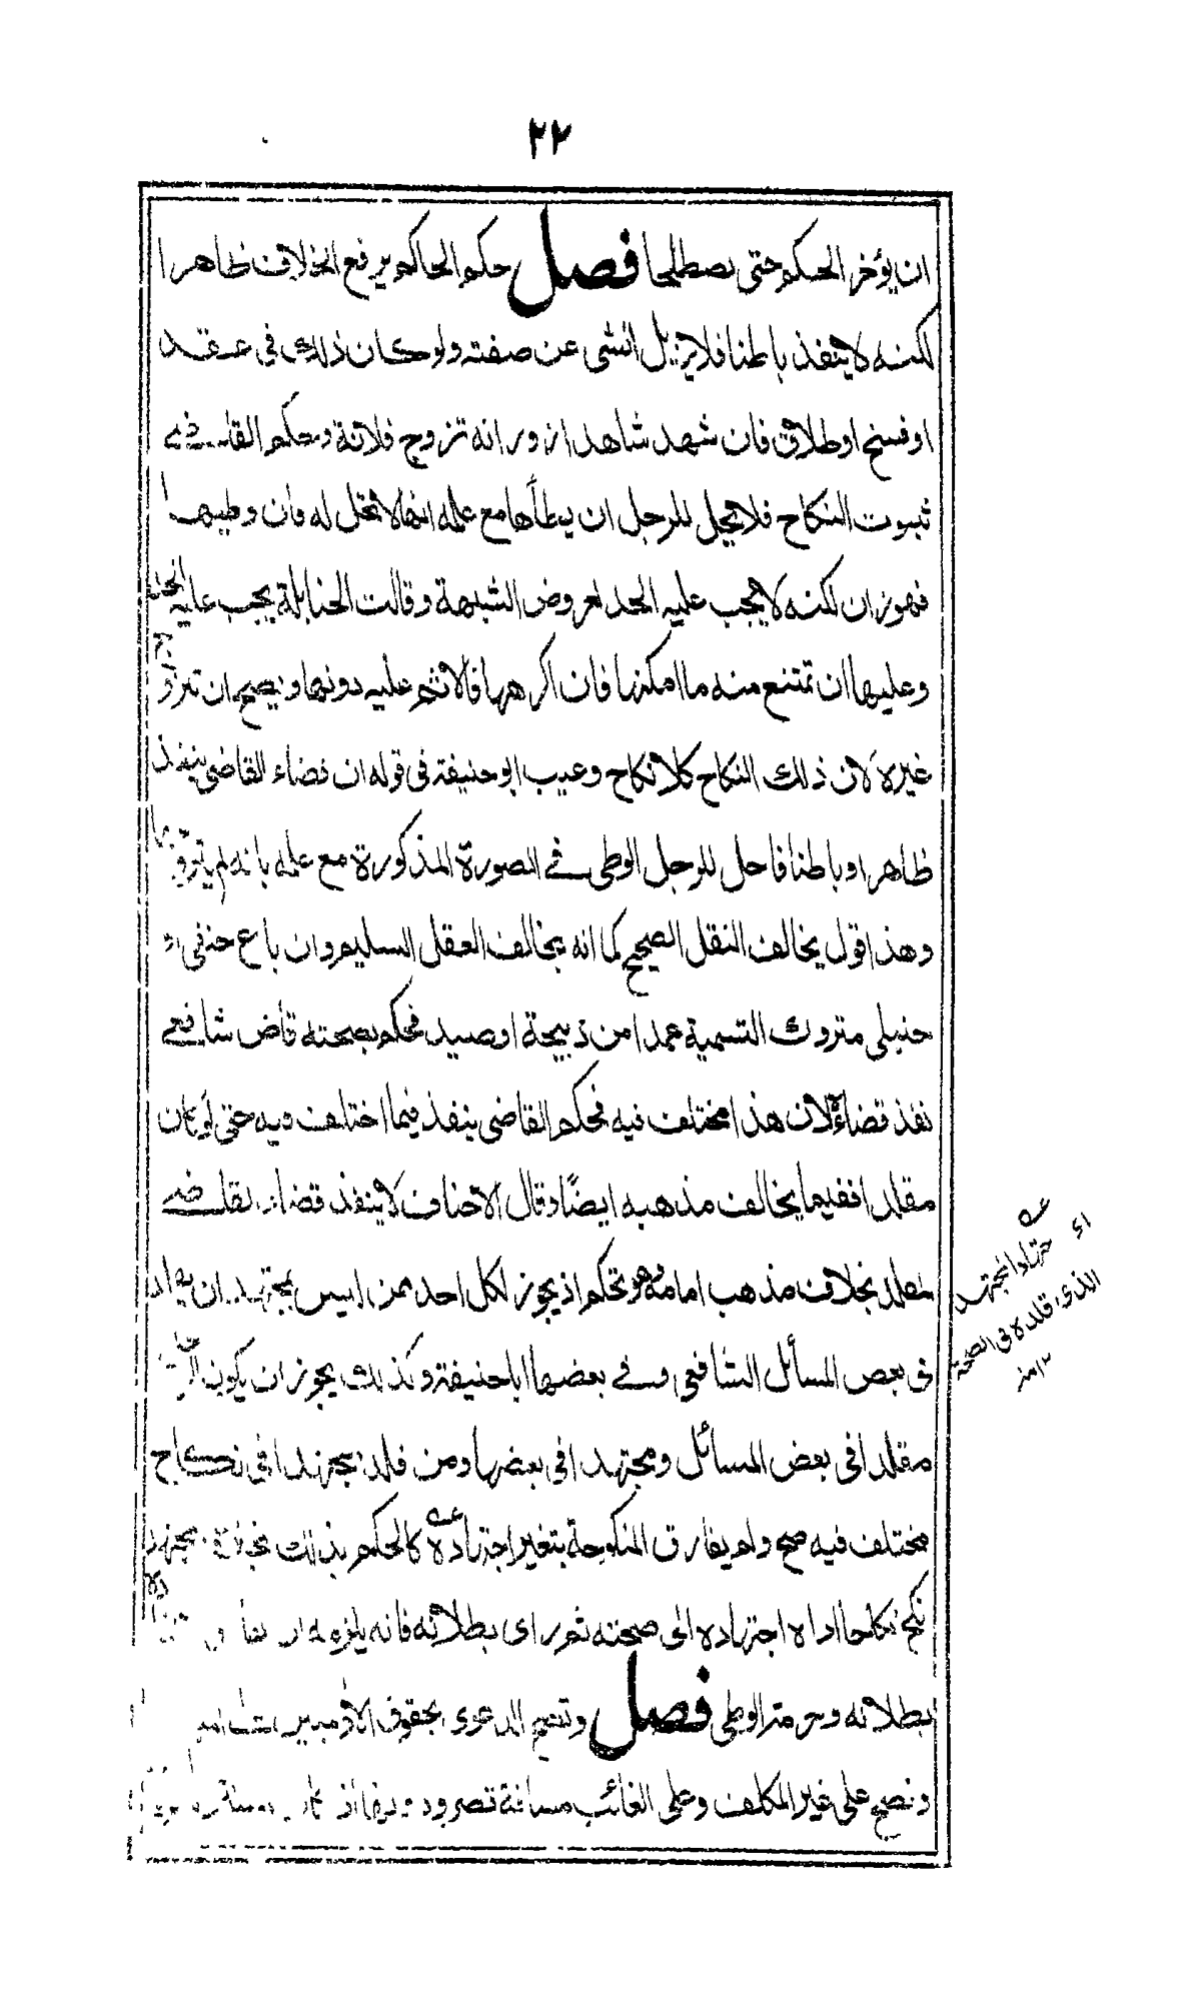 ٢٢
ان يؤخر الحكم حتى يصطلحا فصل حكم الحاكم يرفع الخلاف ظاهرا
لكنه لا ينفذ باطنا فلا يزيل الشى عن صفته ولو كان ذلك فى عقد
او فسخ او طلاق فان شهد شاهد ا زور انه تزوج فلانة وحكم القاضى
ثبوت النكاح فلا يحل للرجل ان يطأها مع علمه انها لا تحل له فان وطيها
فهو زان لكنه لا يجب عليه الحد لعروض الشبهة وقالت الحنابلة يجب عليه الحد
وعليها ان تمتنع منه ما امكنها فان اكرهها فالاثم عليه دونها ويصح ان تتزوج
غيره لان ذلك النكاح كلا نكاح وعيب ابو حنيفة فى قوله ان قضاء القاضى ينفذ
ظاهرا وباطنا فاحل للرجل الوطى فى الصورة المذكورة مع علمه بانه لم يتزوجها
وهذا قول يخالف النقل الصحيح كما انه يخالف العقل السليم وان باع حنفى او
حنبلى متروك التسمية عمدا من ذبيحة او صيد فحكم بصحته قاض شافعى
نفذ قضاءه لان هذا مختلف فيه فحكم القاضى ينفذ فيما اختلف فيه حتى لو كان
مقلدا ففيما يخالف مذهبه ايضًا وقال الاحناف لا ينفذ قضاء القاضى
مقلد بخلاف مذهب امامه وهو تحكم اذ يجوز لكل احد ممن ليس بمجتهد ان يقلد
فى بعض المسأل الشافعى وفى بعضها ابا حنيفة وكذلك يجوز ان يكون
مقلدا فى بعض المسائل ومجتهدا فى بعضها ومن قلد مجتهدا فى نكاح
مختلف فيه صح ولم يفارق المنكوحة بتغير اجتهاده كالحكم بذلك بخلاف مجتهد
نكح نكاحا اداه اجتهاده الى صحته ثم راى بطلانه فانه يلزمه ان
بطلانه وحرمة الوطى فصل وتصح الدعوى بحقوق الآدميين
وتصح على غير المكلف وعلى الغائب مسافة قصر ودونها اذا
اى اجتهاد المجتهد
الذى قلده فى الصحة
١٢ منه